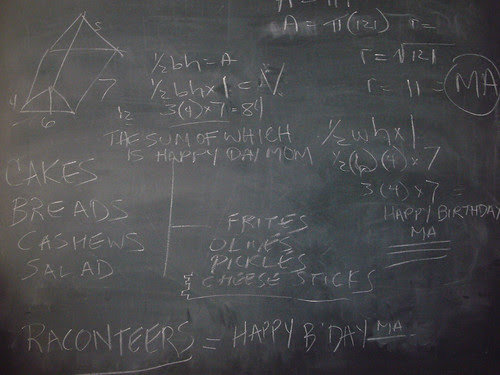 A = π(121) r =
r = √121
r = 11 = MA
5
7
4
6
½bh = A
½bhxl = V
½
3(4)x7 = 84
THE SUM OF WHICH
IS HAPPY DAY MOM
½whxl
½(6)(4)x7
3(4)x7 =
HAPPY BIRTHDAY
MA
CAKES
BREADS
CASHEWS
SALAD
FRITES
OLIVES
PICKLES
CHEESE STICKS
RACONTEERS = HAPPY B'DAY MA